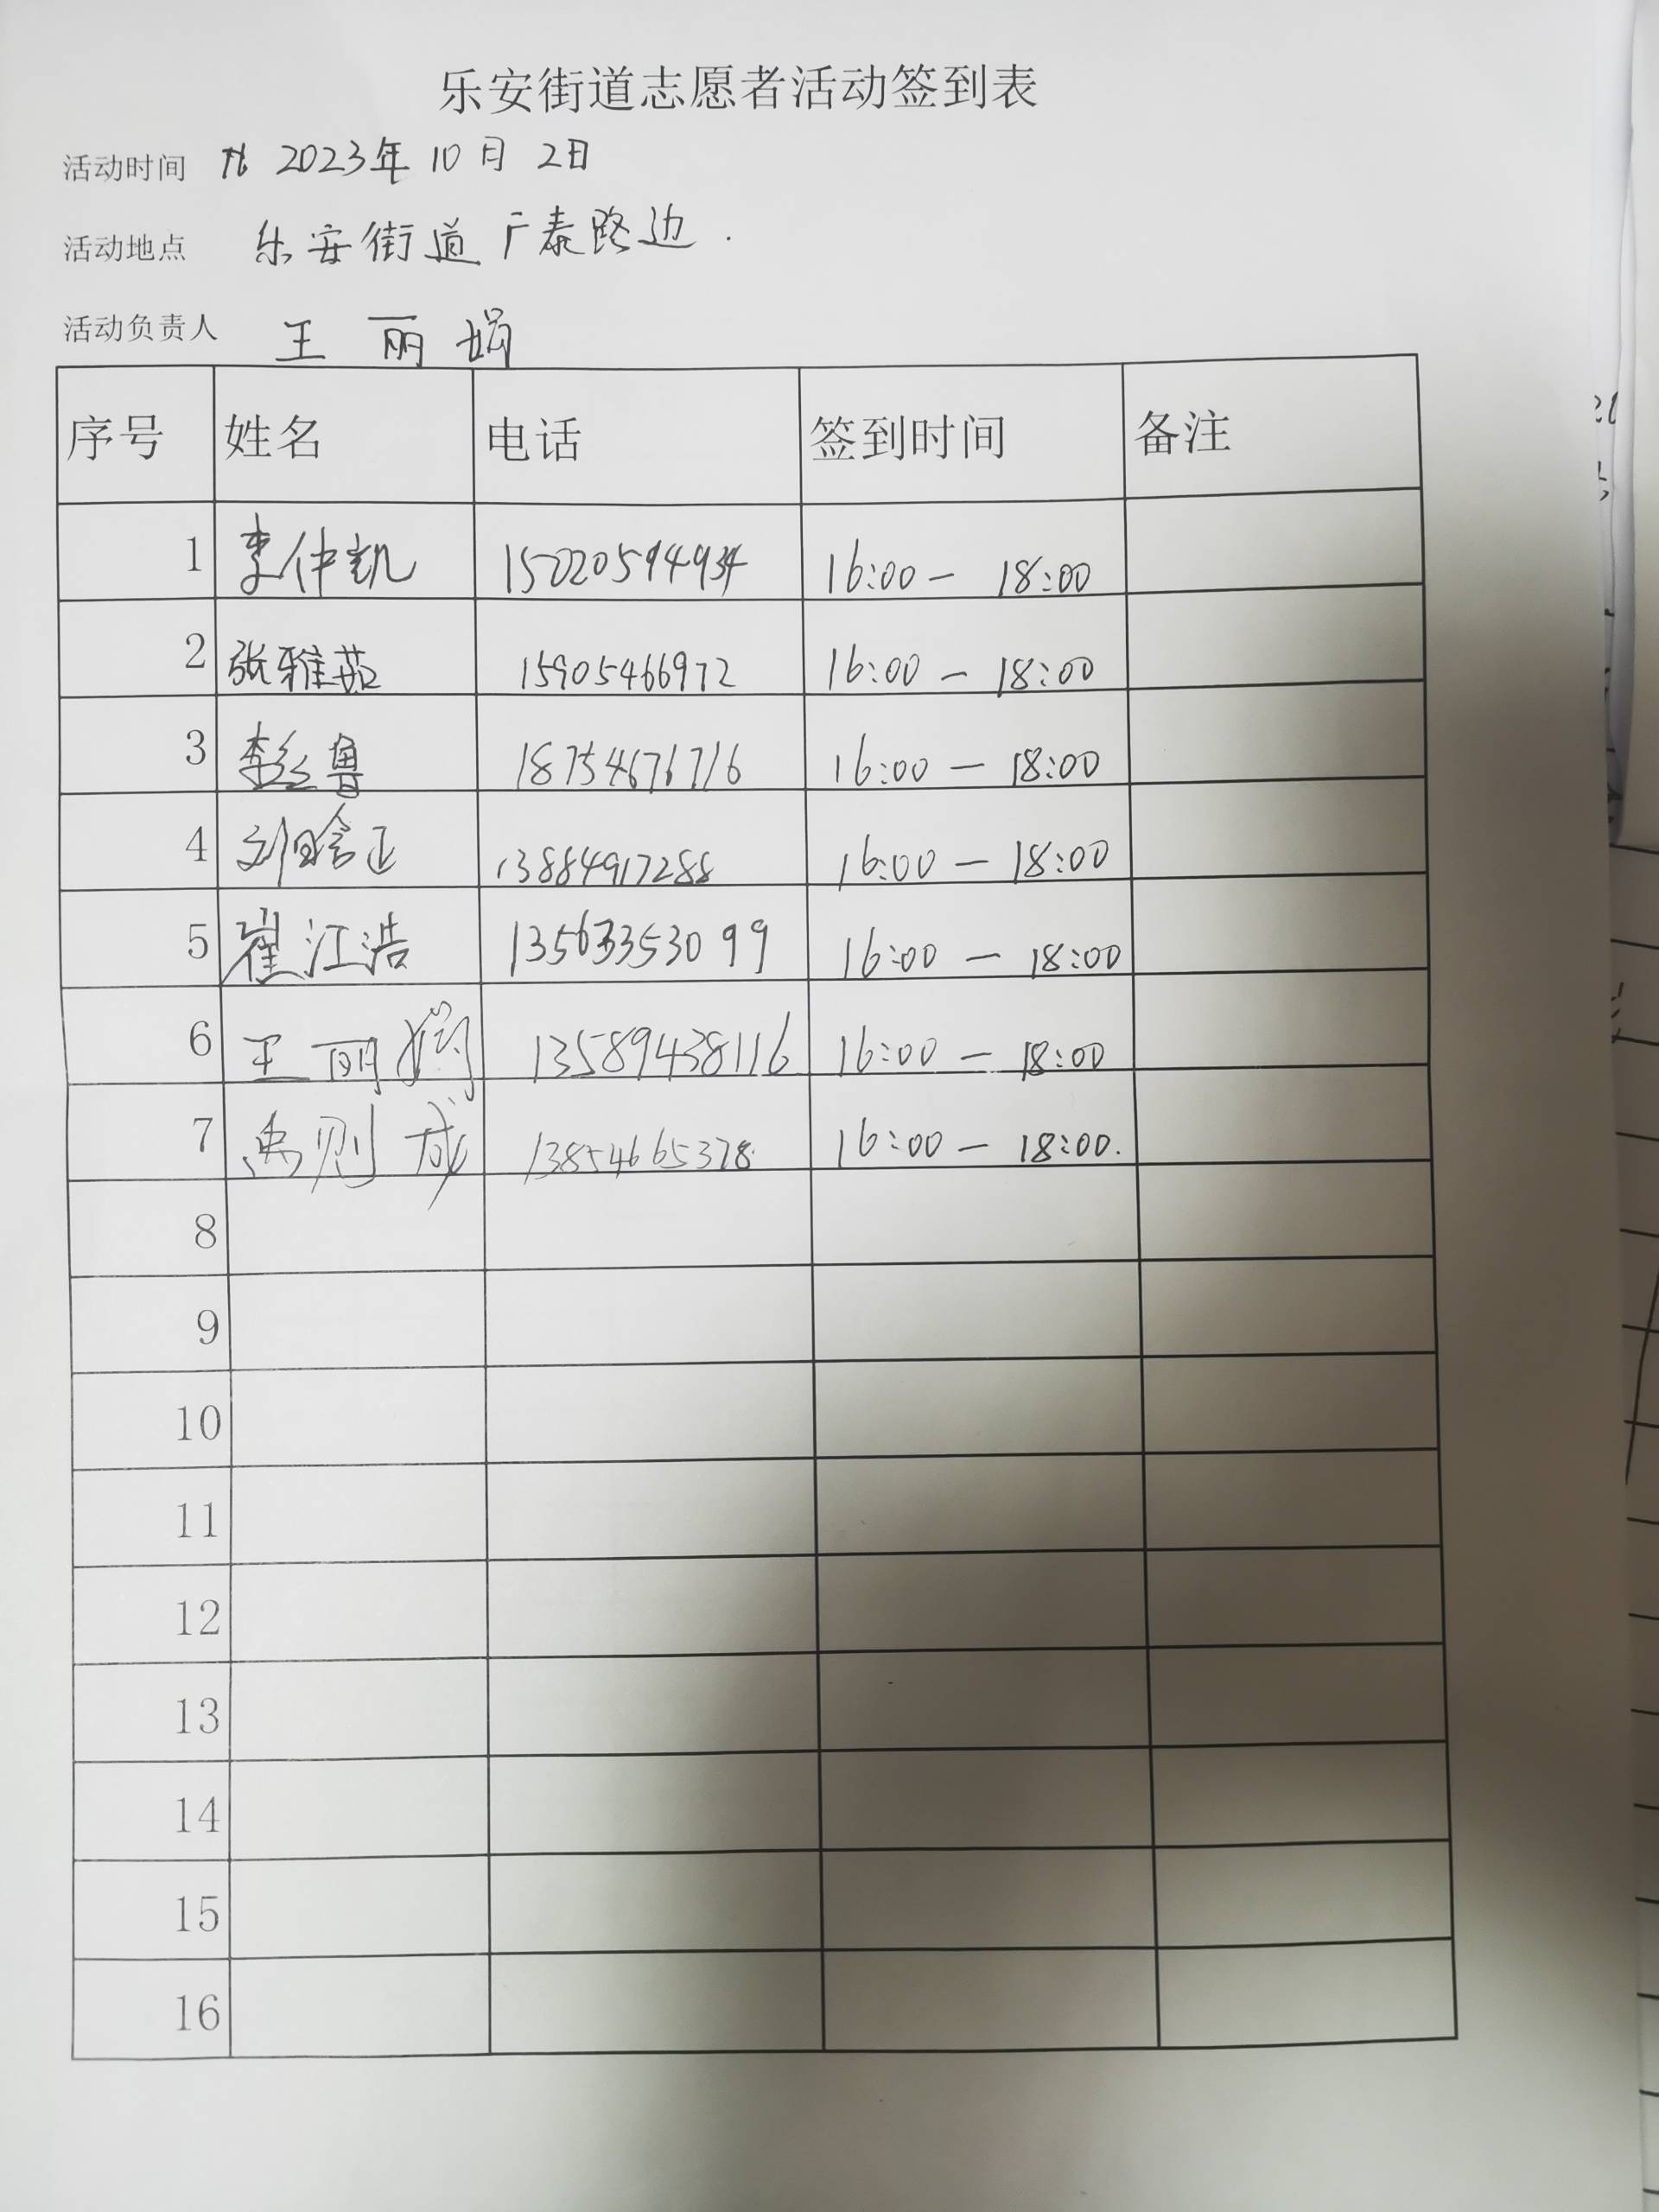 乐安街道志愿者活动签到表
活动时间 2023年10月2日
活动地点 乐安街道广泰路边.
活动负责人 王丽娟
序号 姓名 电话 签到时间 备注
1 李仲凯 15020594934 16:00 — 18:00
2 张雅茹 15905466972 16:00 — 18:00
3 18754676716 16:00 — 18:00
4 13884917288 16:00 — 18:00
5 崔江浩 13563353099 16:00 — 18:00
6 王丽娟 13589438116 16:00 — 18:00
7 13854665378 16:00 — 18:00.
8
9
10
11
12
13
14
15
16